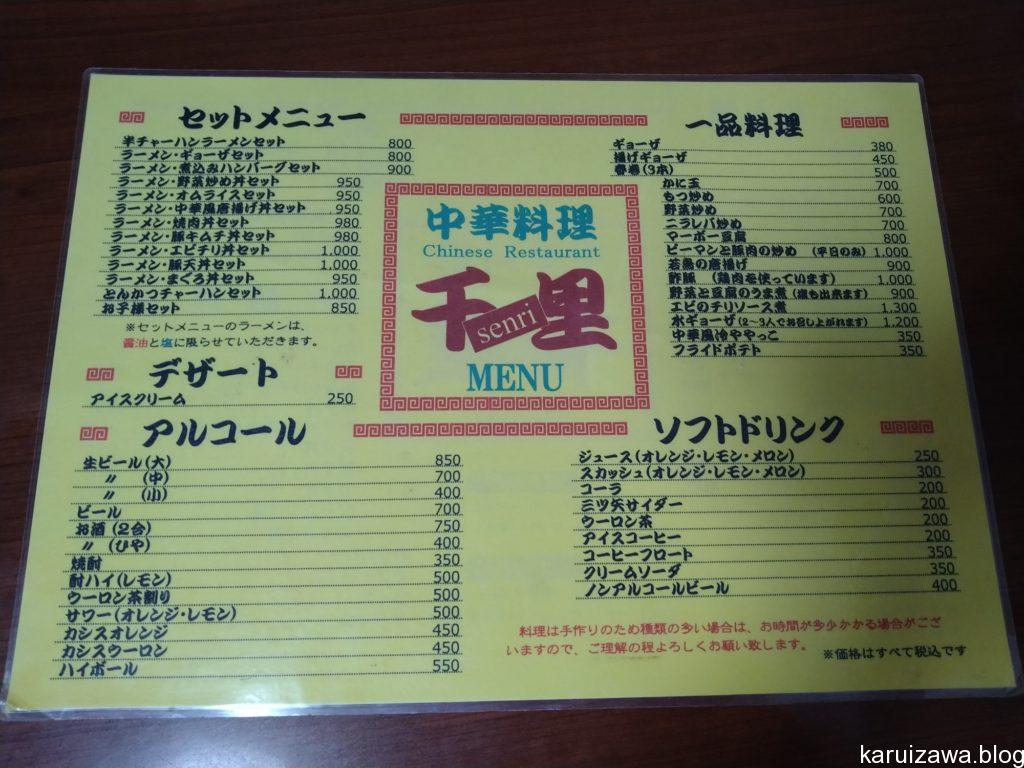 セットメニュー
半チャーハンラーメンセット 800
ラーメン・ギョーザセット 800
ラーメン・煮込みハンバーグセット 900
ラーメン・野菜炒め丼セット 950
ラーメン・オムライスセット 950
ラーメン・中華風唐揚げ丼セット 950
ラーメン・焼肉丼セット 980
ラーメン・豚キムチ丼セット 980
ラーメン・エビチリ丼セット 1,000
ラーメン・豚天丼セット 1,000
ラーメン・まぐろ丼セット 950
とんかつチャーハンセット 1,000
お子様セット 850
※セットメニューのラーメンは、
醤油と塩に限らせていただきます。
デザート
アイスクリーム 250
中華料理
Chinese Restaurant
千里
senri
MENU
一品料理
ギョーザ 380
揚げギョーザ 450
春巻(3本) 500
かに玉 700
もつ炒め 600
野菜炒め 700
ニラレバ炒め 700
マーボー豆腐 800
ピーマンと豚肉の炒め (平日のみ) 1,000
若鳥の唐揚げ 900
酢豚 (鶏肉を使っています) 1,000
野菜と豆腐のうま煮(塩も出来ます) 900
エビのチリソース煮 1,300
水ギョーザ(2~3人でお召し上がれます) 1,200
中華風冷ややっこ 350
フライドポテト 350
アルコール
生ビール(大) 850
〃 (中) 700
〃 (小) 400
ビール 700
お酒(2合) 750
〃 (ひや) 400
焼酎 350
酎ハイ(レモン) 500
ウーロン茶割り 500
サワー(オレンジ・レモン) 500
カシスオレンジ 450
カシスウーロン 450
ハイボール 550
ソフトドリンク
ジュース(オレンジ・レモン・メロン) 250
スカッシュ(オレンジ・レモン・メロン) 300
コーラ 200
三ツ矢サイダー 200
ウーロン茶 200
アイスコーヒー 200
コーヒーフロート 350
クリームソーダ 350
ノンアルコールビール 400
料理は手作りのため種類の多い場合は、お時間が多少かかる場合がござ
いますので、ご理解の程よろしくお願い致します。
※価格はすべて税込です
karuizawa.blog